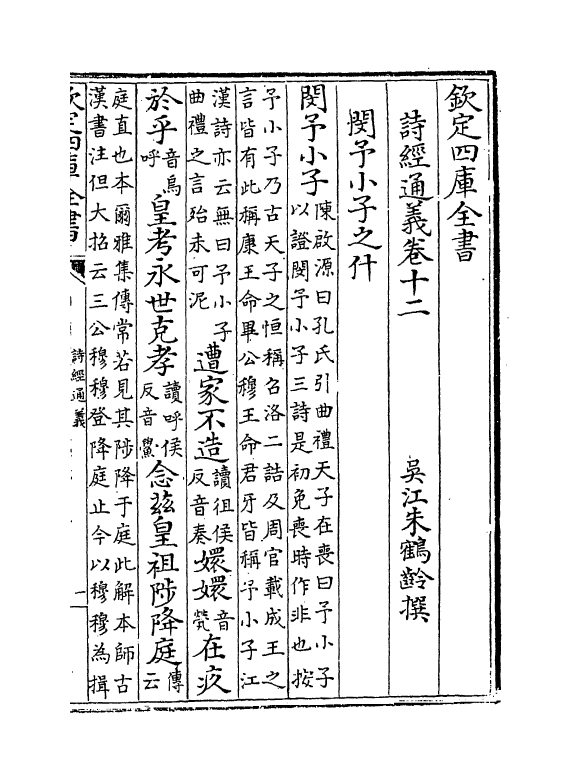 欽定四庫全書
詩經通義卷十二 吳江朱鶴齡撰
閔予小子之什
閔予小子 陳啟源曰孔氏引曲禮天子在喪曰予小子
以證閔予小子三詩是初免喪時作非也按
予小子乃古天子之恒稱召洛二誥及周官載成王之
言皆有此稱康王命畢公穆王命君牙皆稱予小子江
漢詩亦云無曰予小子
曲禮之言殆未可泥 遭家不造 讀徂侯反音奏 嬛嬛 音煢 在疚
於乎 音烏呼 皇考永世克孝 讀呼侯反音鱟 念茲皇祖陟降庭 傳云
庭直也本爾雅集傳常若見其陟降于庭此解本師古
漢書注但大招云三公穆穆登降庭止今以穆穆為揖
欽定四庫全書
詩經通義
一